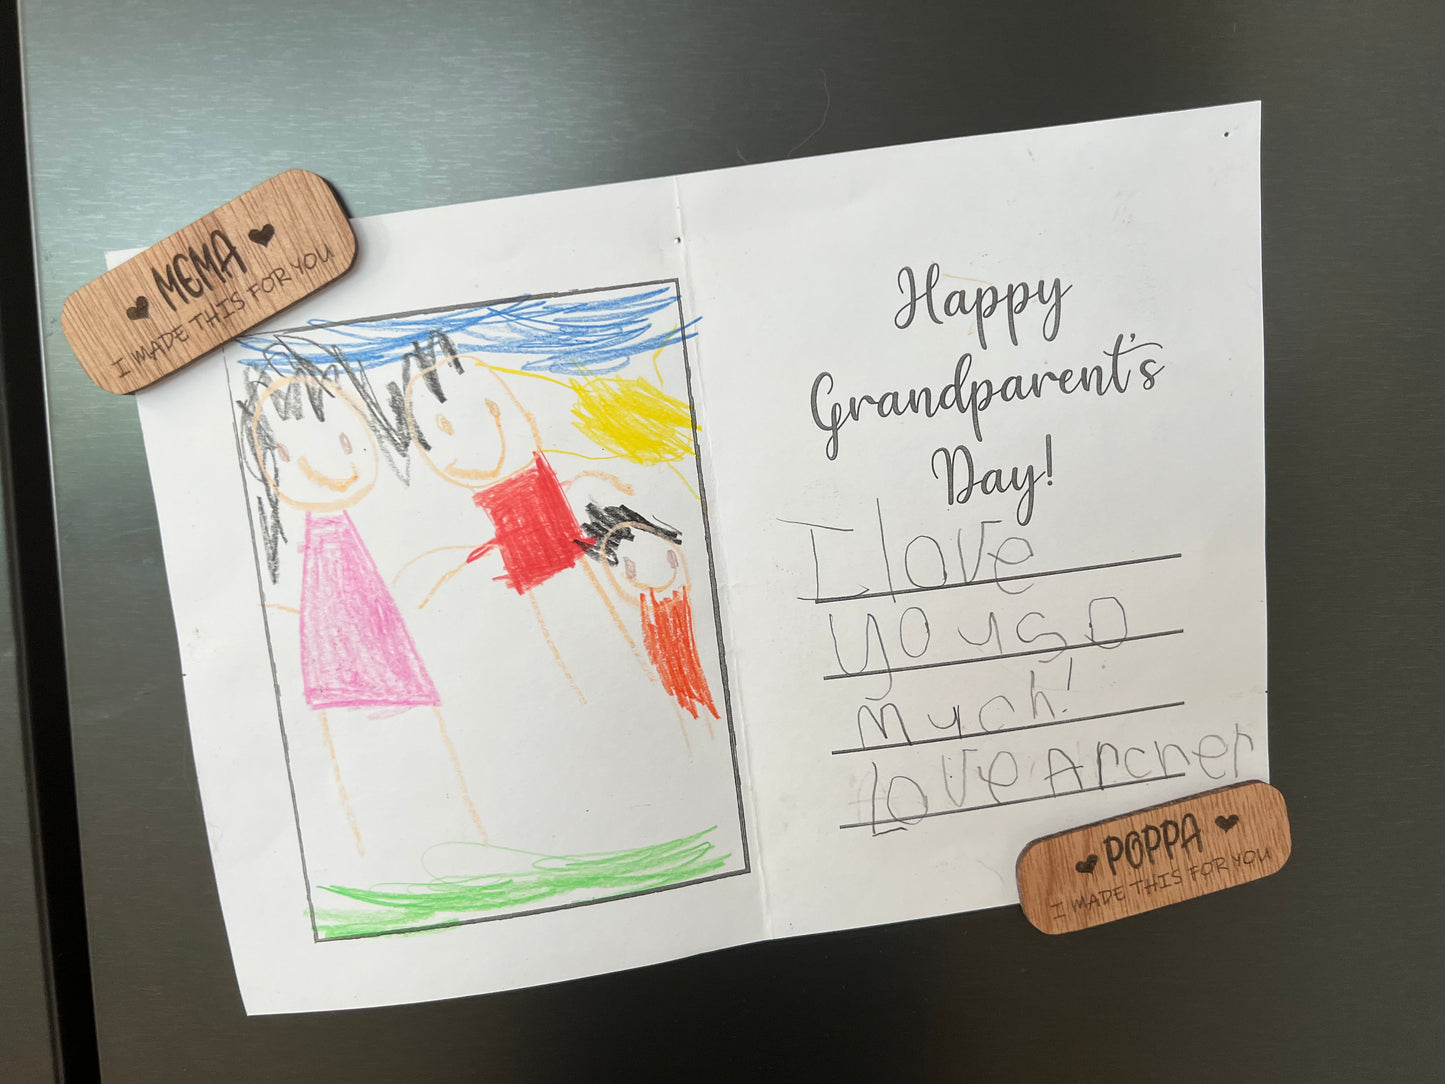 ♥ MEMA ♥
I MADE THIS FOR YOU
Happy
Grandparent's
Day!
I love
you so
much!
Love Archer
♥ POPPA ♥
I MADE THIS FOR YOU